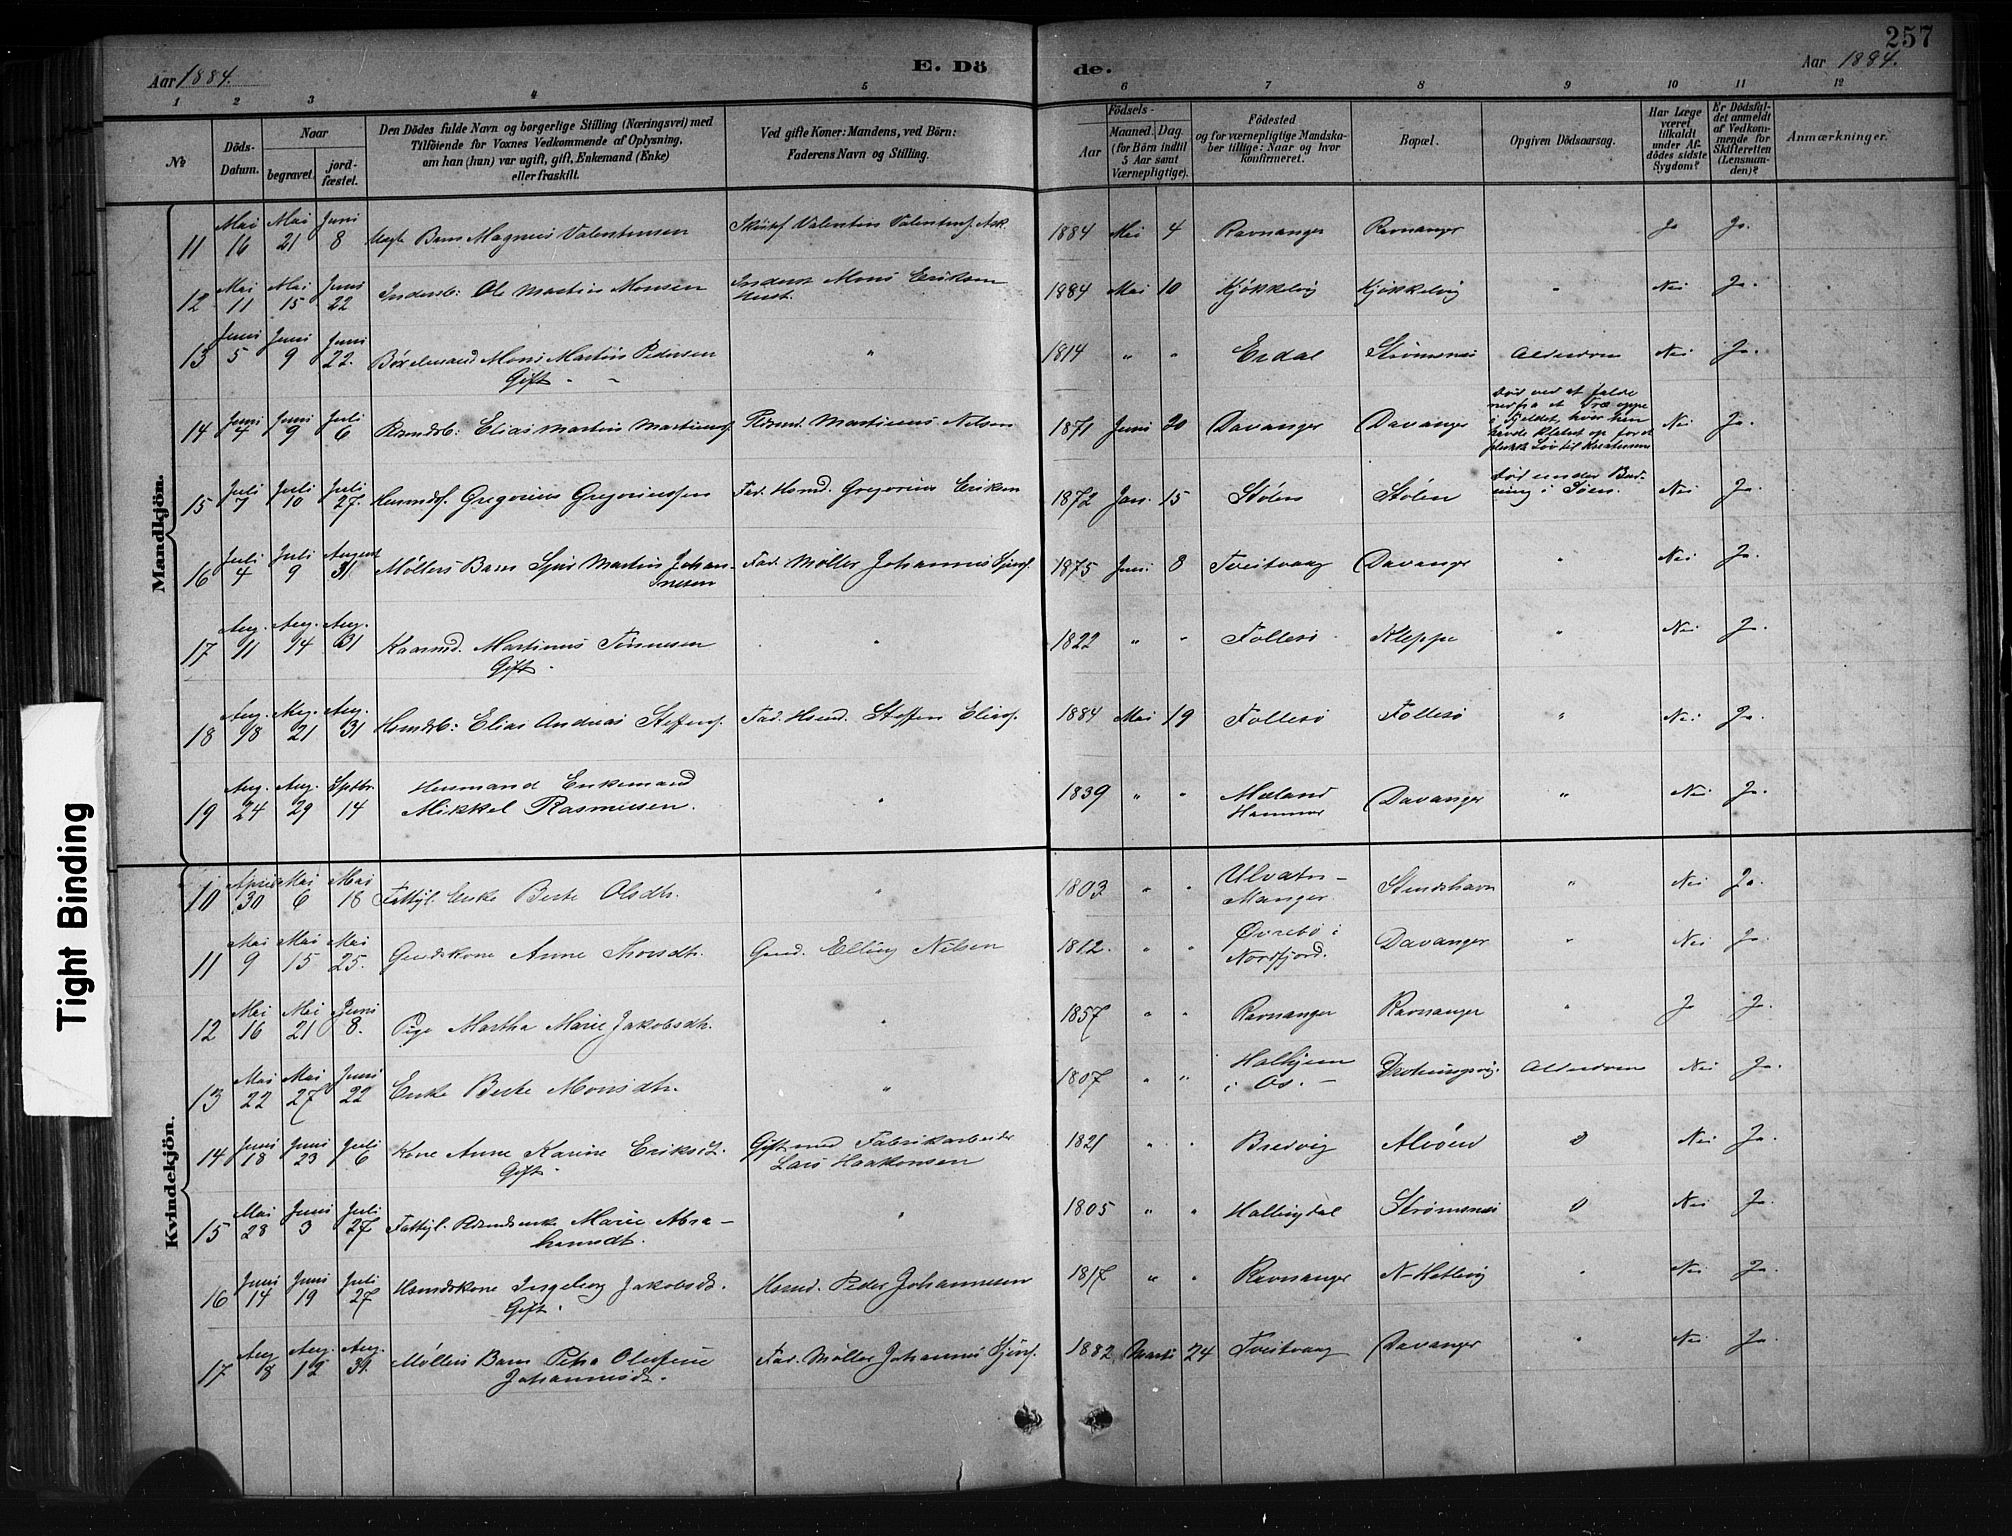 257
Aar 1884.
E. Dö
de.
Aar 1884.
1 2 3 4 5 6 7 8 9 10 11 12
No
Döds-Datum.
Naar
begravet.
jord-fæstet.
Den Dödes fulde Navn og borgerlige Stilling (Næringsvei) med
Tilföiende for Voxnes Vedkommende af Oplysning,
om han (hun) var ugift, gift, Enkemand (Enke)
eller fraskilt.
Ved gifte Koner: Mandens, ved Börn:
Faderens Navn og Stilling.
Födsels-
Aar
Maaned. Dag.
(for Börn indtil
5 Aar samt
Værnepligtige).
Födested
og for værnepligtige Mandska-
ber tillige: Naar og hvor
konfirmeret.
Bopæl.
Opgiven Dödsaarsag.
Har Læge
været
tilkaldt
under Af-
dödes sidste
Sygdom?
Er Dödsfal-
det anmeldt
af Vedkom-
mende for
Skifteretten
(Lensman-
den)?
Anmærkninger.
Mandkjön.
11 Mai 16 Mai 21 Juni 8 Barn Magnus Valentinsen Valentin Valentins. Ask 1884 Mai 4 Ravnanger Ravnanger Ja Ja.
12 Mai 11 Mai 15 Juni 22 Inderstb: Ole Martin Monsen Inderst Mons Eriksen 1884 Mai 10 Kjøkkelvig Kjøkkelvig " Nei Ja.
13 Juni 5 Juni 9 Juni 22. Bøxelmand Mons Martin Pedersen " 1814 " " Erdal Strømsnes Alderdom Nei Ja.
Gift
14 Juni 4 Juni 9 Juli 6 Elias Martin Martinus. Martinus Nilsen 1871 Juni 20 Davanger Davanger død ved at falde
ned fra et Træ oppe
i Fjeldet, hvor han
havde klatret op for at
plukke Løv til Kreaturene Nei Ja.
15 Juli 7 Juli 10 Juli 27. Gregorius Gregoriussen Fad. Hsmd. Gregorius Eriksen 1872 Jan. 15 Stølen Stølen død under Bad-
ning i Søen. Nei Ja.
16 Juli 4 Juli 9 August 31. Møllers Barn Sjur Martin Johan-
nesen Fad. Møller Johannes Sjurs. 1875 Juni 8 Tveitvaag Davanger " Nei Ja.
17 Aug. 11 Aug. 14 Aug. 31 Kaarmd. Martinus Tønnesen " 1822 " " Follesø Kleppe " Nei Ja.
Gift.
18 Aug. 18 Aug. 21 Aug. 31 Hsmdsb: Elias Andreas Steffens. Fad. Hsmd. Steffen Elias. 1884 Mai 19 Follesø Follesø " Nei Ja.
19 Aug. 24 Aug. 29 Septbr. 14 Husmand Enkemand
Mikkel Rasmussen. " 1839 " " Mæland
Hammer Davanger " Nei Ja.
Kvindekjön.
10 April 30 Mai 6 Mai 18 Fattigl. Enke Berte Olsdtr. " 1803 " " Ulvatn -
Manger. " Nei Ja.
11 Mai 9 Mai 15 Mai 25. Gmdskone Anne Thorsdtr. Gmd. Elling Nilsen 1812. " " Øvrebø i
Nordfjord. Davanger " Nei Ja.
12 Mai 16 Mai 21 Juni 8. Pige Martha Marie Jakobsdtr. " 1857 " " Ravnanger Ravnanger " Ja Ja.
13 Mai 22 Mai 27 Juni 22 Enke Berte Monsdtr. " 1807 " " Halhjem
i Os. - Alderdom Nei Ja.
14 Juni 18 Juni 23 Juli 6 Kone Anne Karine Eriksdt. Gift med Fabrikarbeider
Gift. Lars Haakonsen 1821 " " Bredvig Alvøen Nei Ja.
15 Mai 28 Juni 3 Juli 27 Fattigl. Marie Abra-
hamsdt. " 1805 " " Hallingdal Strømsnes Nei Ja.
16 Juni 14 Juni 19 Juli 27 Hsmdskone Ingeborg Jakobsdt. Hsmd. Peder Johannesen 1817 " " Ravnanger N-Hatlevig " Nei Ja.
Gift.
17 Aug 8 Aug. 12 Aug. 31 Møllers Barn Petra Olefine
Johannesdt. Fad. Møller Johannes Sjurs. 1882 Marts 24 Tveitvaag Davanger " Nei Ja.
Tight Binding